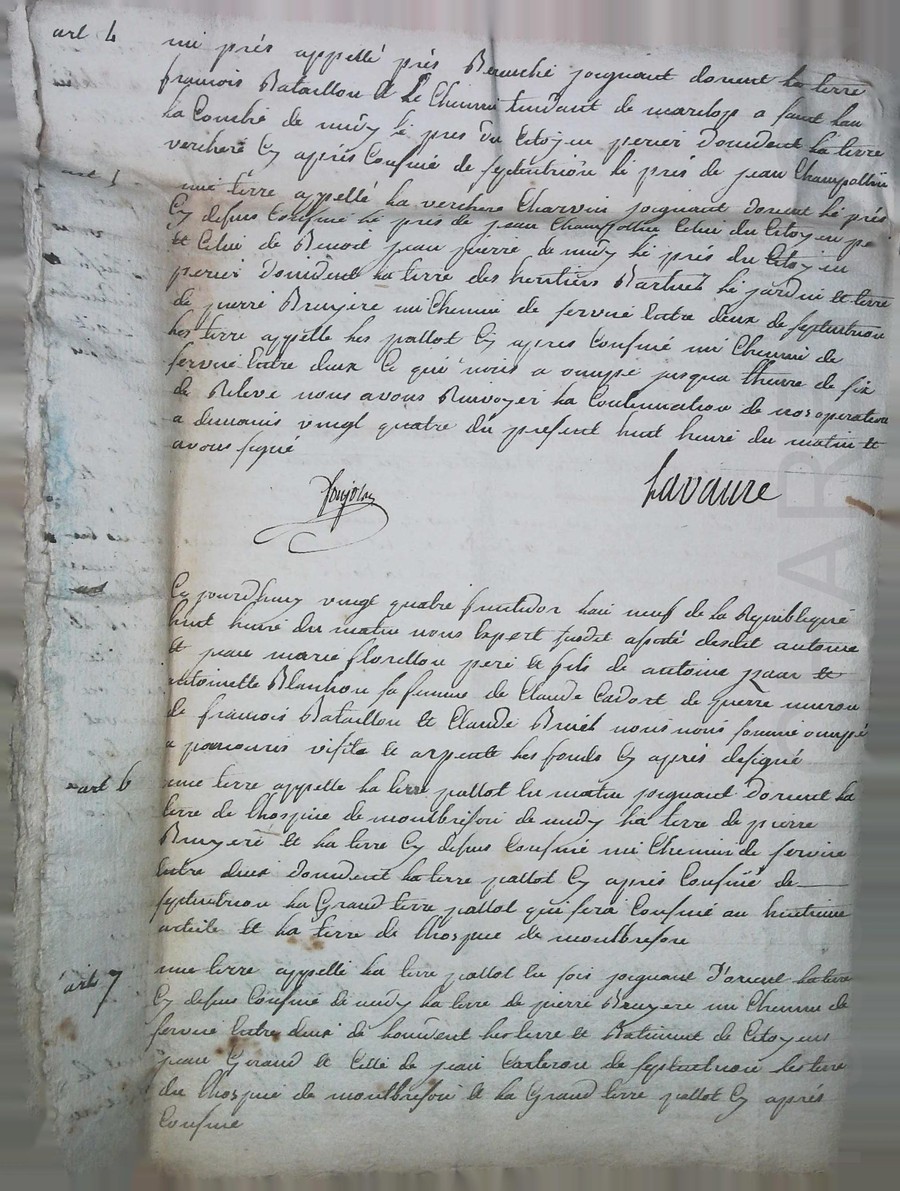 art 4 un prés appellé prés Beruché joignant dorient la terre
francois Bataillon et le Chemin tendant de marclop a saint lau
la Combe de midy le pres du Citoyen perier Doccident la terre
verchere Cy aprés Confiné de septentrion le prés de jean Champollion
art 5 une terre appellé la verchere Charvin joignant dorient le prés
Cy depus Confiné le prés de jean Champollion Celui du Citoyen pe
et Celui de Benoit jean pierre de midy le prés du Citoyen
perier Doccident la terre des heritiers le jardin et terre
de pierre Bruyere un Chemin de service Entre deux de septentrion
les terre appellé les pallot Cy apres Confiné un Chemin de
service Entre deux Ce qui nous a ocupé jusqua lheure de six
de Relevé nous avons Renvoyer la Continuation de nos operation
a demain vingt quatre du present huit heure du matin et
avons signé
Lavaure
Cy jourdhuy vingt quatre fructidor lan neuf de la Republique
huit heure du matin nous Expert susdit desdit antoine
et jean marie florillon pere et fils de antoine et
antoinette Blanchon sa femme de Claude Cadort de pierre
de francois Bataillon et Claude nous nous somme ocupé
a parcourir visite et arpente les fonds Cy aprés designé
art 6 une terre appelle la terre pallot du matin joignant Dorient la
terre de lhospice de montbrison de midy la terre de pierre
Bruyere et la terre Cy depus Confiné un Chemin de service
Entre deux doccident la terre pallot Cy aprés Confiné de
septentrion la Grand terre pallot qui sera Confiné au huitieme
article et la terre de lhospice de montbrison
art 7 une terre appellé la terre pallot du soir joignant Dorient la terre
Cy depus Confiné de midy la terre de pierre Bruyere un Chemin de
service Entre deux de les terre et Batiment de Citoyens
jean Giraud et Celle de jean de septentrion les terre
du lhospice de montbrison et la Grand terre pallot Cy aprés
Confiné